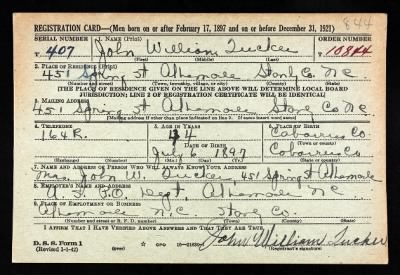 844
REGISTRATION CARD—(Men born on or after February 17, 1897 and on or before December 31, 1921)
SERIAL NUMBER 1. NAME (Print) ORDER NUMBER
T. 407 John William Tucker 10844
(First) (Middle) (Last)
2. PLACE OF RESIDENCE (Print)
451 Spring St Albemarle Stanly Co. N.C.
(Number and street) (Town, township, village, or city) (County) (State)
[THE PLACE OF RESIDENCE GIVEN ON THE LINE ABOVE WILL DETERMINE LOCAL BOARD
JURISDICTION; LINE 2 OF REGISTRATION CERTIFICATE WILL BE IDENTICAL]
3. MAILING ADDRESS
451 Spring St Albemarle Stanly Co N.C.
(Mailing address if other than place indicated on line 2. If same insert word same)
4. TELEPHONE 5. AGE IN YEARS 6. PLACE OF BIRTH
164 R. 44 Cabarrus Co
DATE OF BIRTH (Town or county)
6 1897 Cabarrus Co
(Mo.) (Day) (Yr.) (State or country)
7. NAME AND ADDRESS OF PERSON WHO WILL ALWAYS KNOW YOUR ADDRESS
Mrs. John W. Tucker, 451 Spring St Albemarle
8. EMPLOYER'S NAME AND ADDRESS
Albemarle N.C.
9. PLACE OF EMPLOYMENT OR BUSINESS
Albemarle N.C. Stanly Co.
(Number and street or R. F. D. number) (Town) (County) (State)
I AFFIRM THAT I HAVE VERIFIED ABOVE ANSWERS AND THAT THEY ARE TRUE.
D. S. S. Form 1
(Revised 1-1-42) GPO John William Tucker
(Registrant's signature)